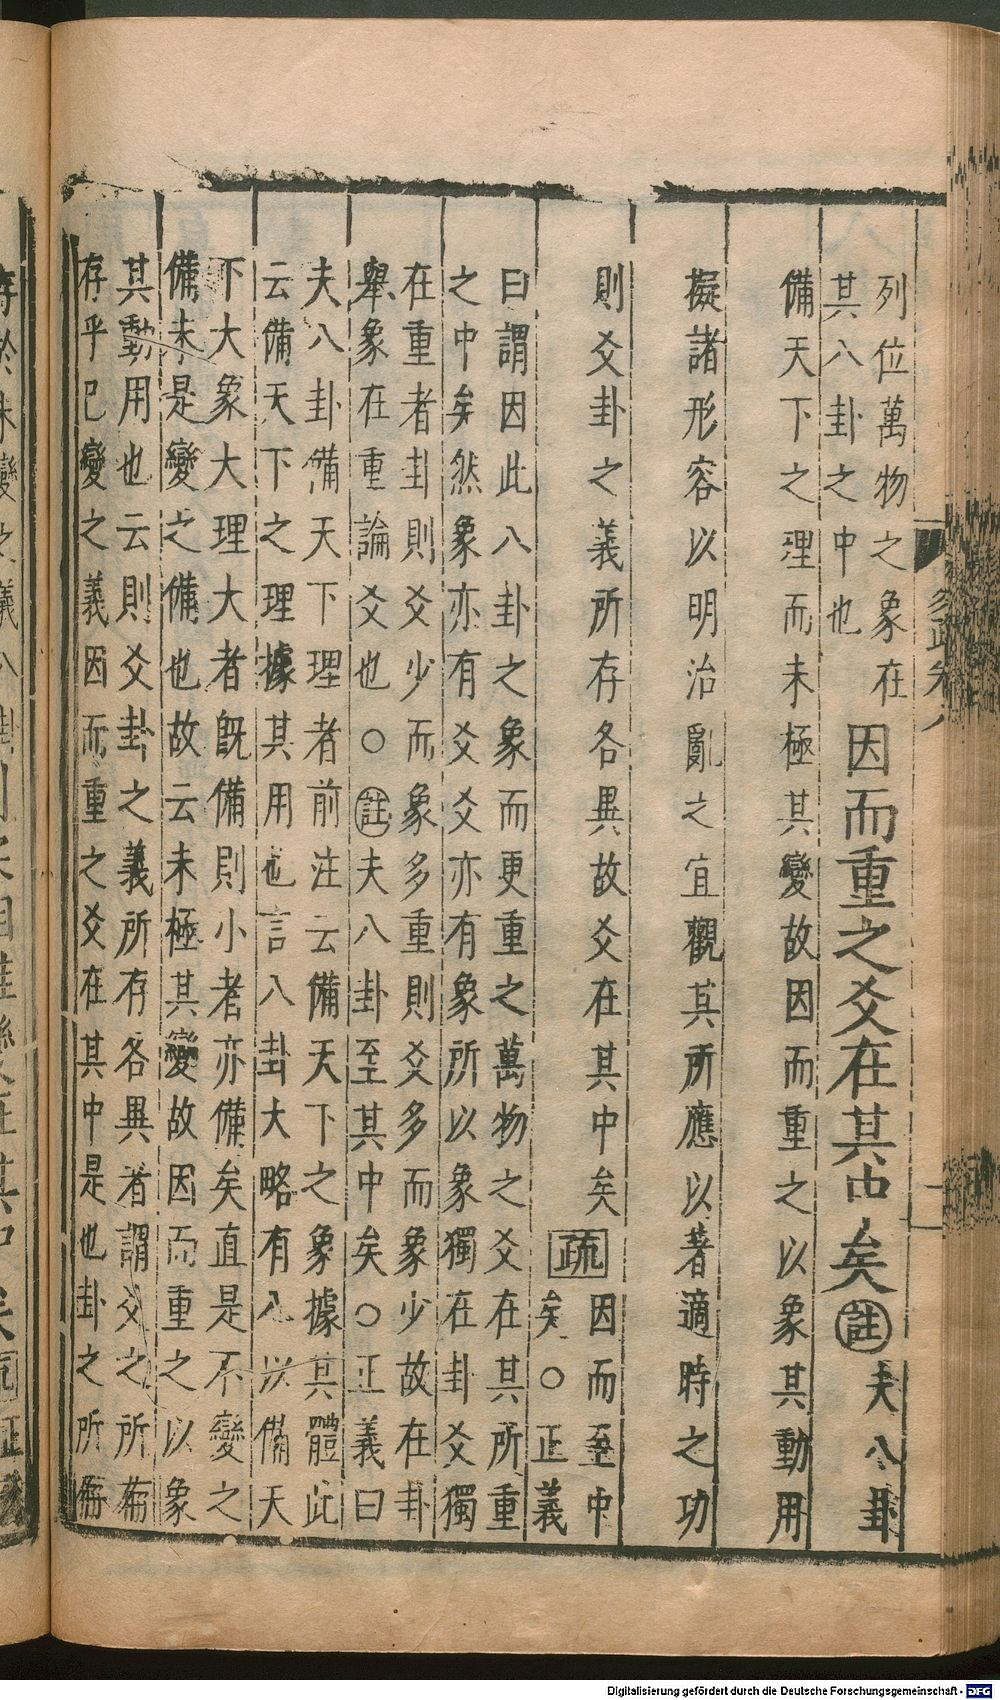 列位萬物之象在
其八卦之中也
因而重之爻在其中矣㊟夫八卦
備天下之理而未極其變故因而重之以象其動用
擬諸形容以明治亂之宜觀其所應以著適時之功
則爻卦之義所存各異故爻在其中矣
疏
因而至中
矣○正義
曰謂因此八卦之象而更重之萬物之爻在其所重
之中矣然象亦有爻爻亦有象所以象獨在卦爻獨
在重者卦則爻少而象多重則爻多而象少故在卦
舉象在重論爻也○註夫八卦至其中矣○正義曰
夫八卦備天下理者前注云備天下之象據其體此
云備天下之理據其用也言八卦大略有八以備天
下大象大理大者旣備則小者亦備矣直是不變之
備未是變之備也故云未極其變故因而重之以象
其動用也云則爻卦之義所存各異者謂爻之所存
存乎已變之義因而重之爻在其中是也卦之所存
Digitalisierung gefördert durch die Deutsche Forschungsgemeinschaft - DFG